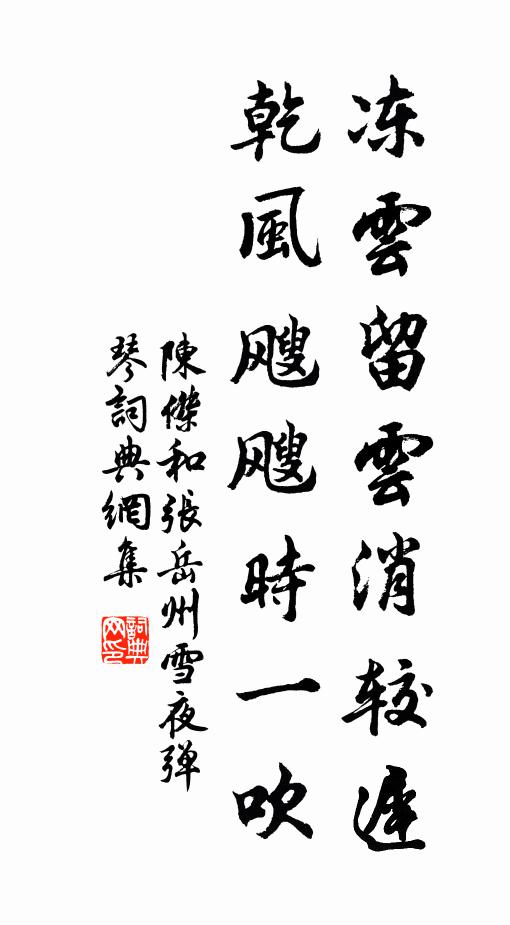 冻雲留雲消较遲
乾風颼颼時一吹
陳傑和張岳州雪夜弹
琴詞典網集
詞典
网印